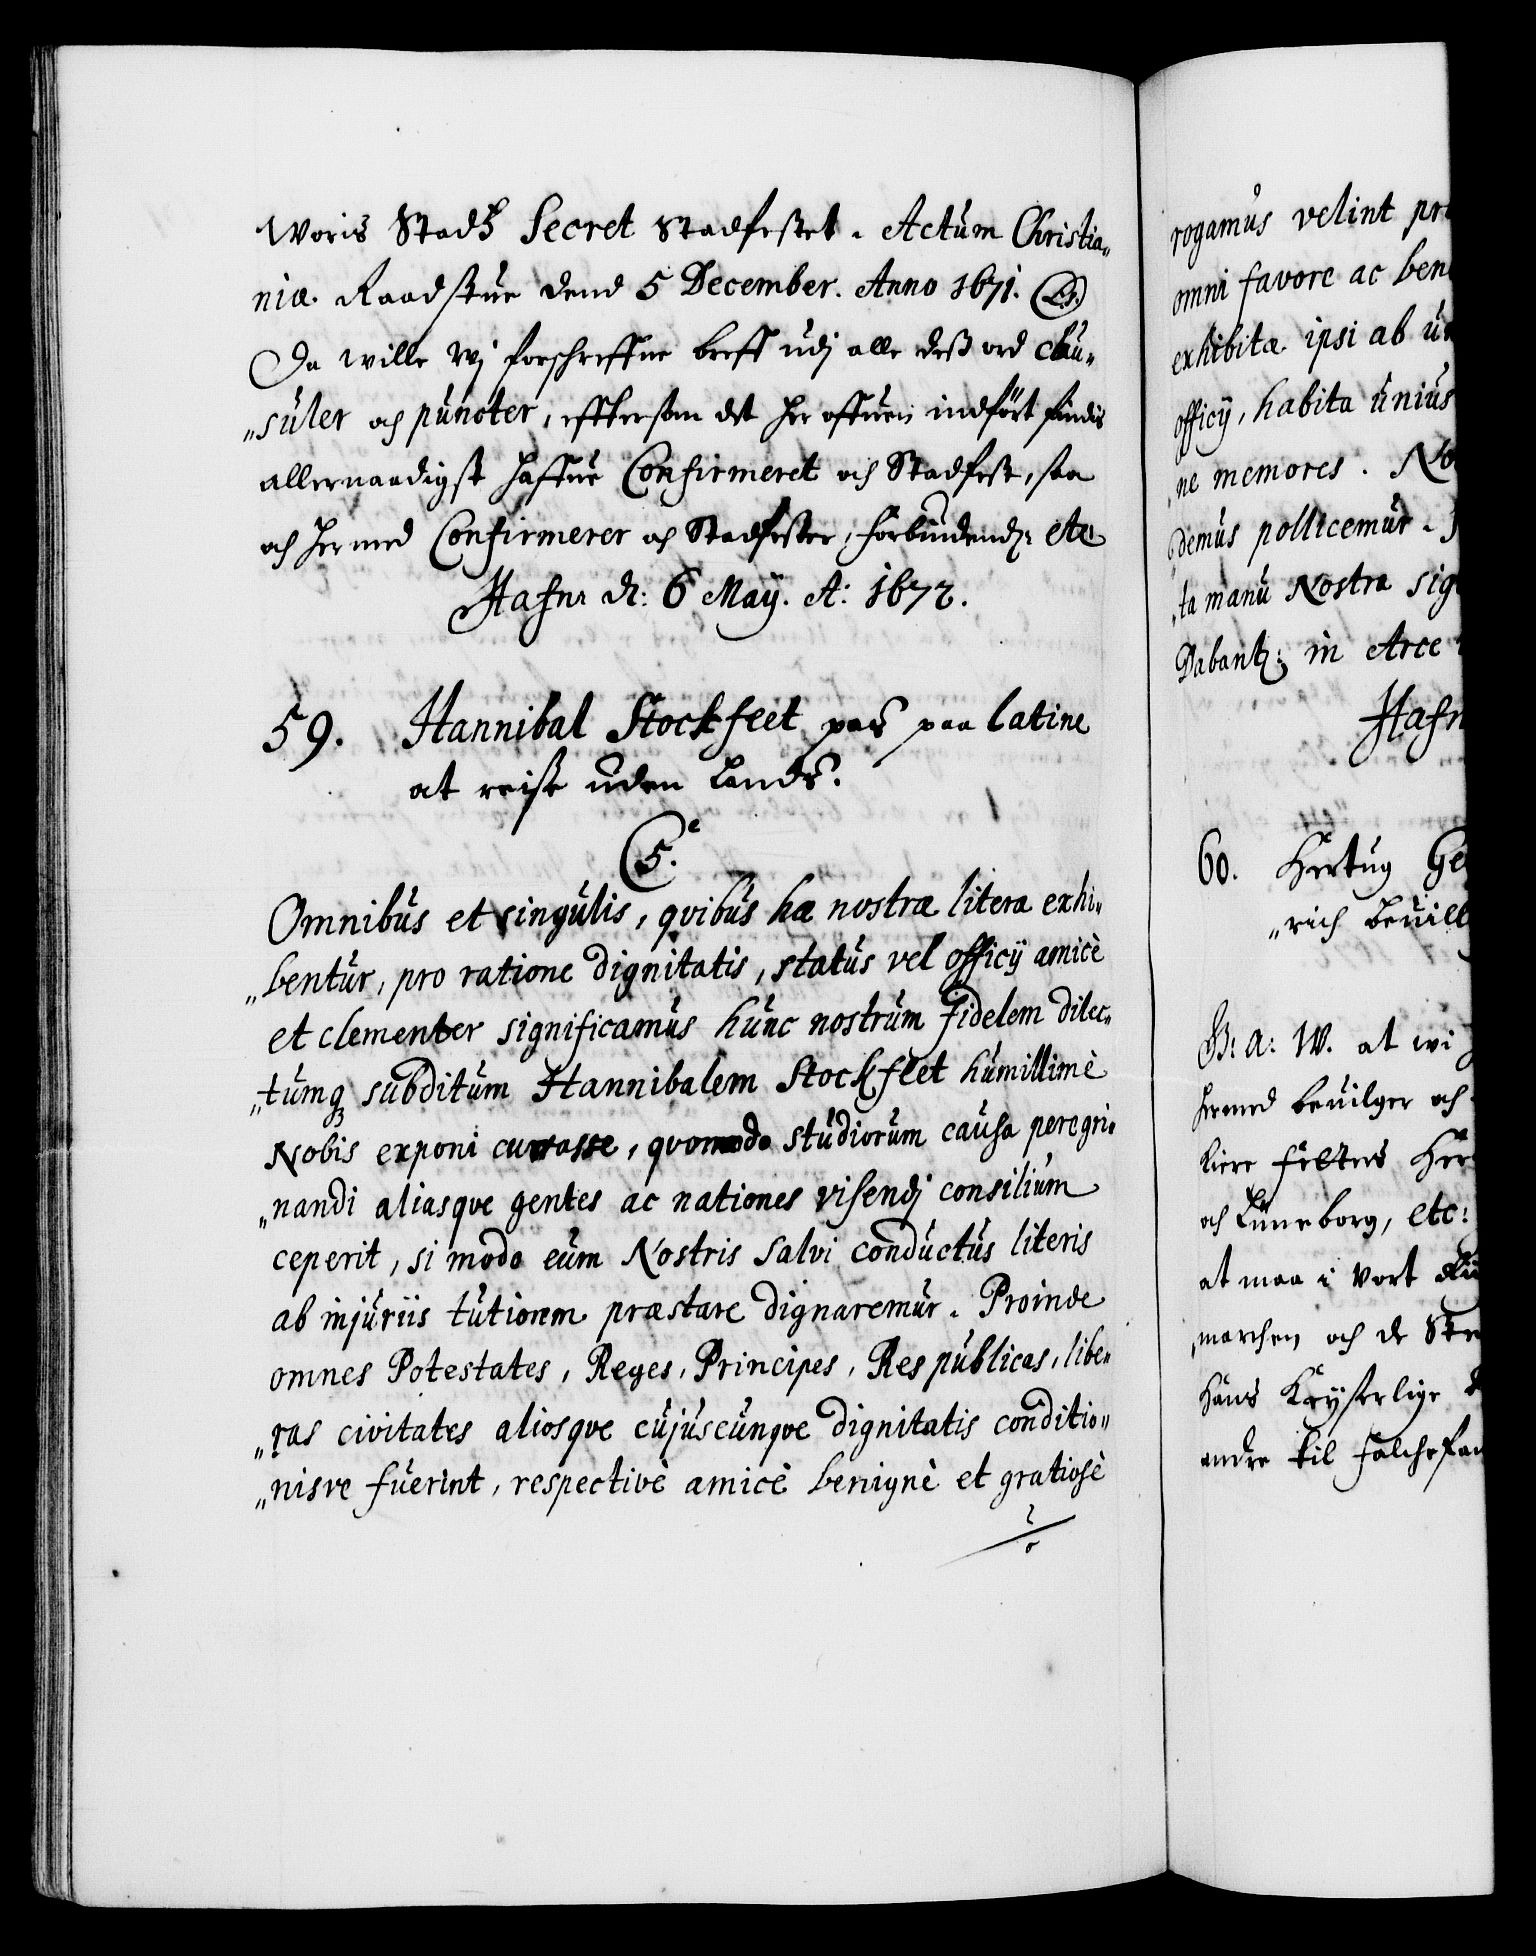 Woris Stadtz Secret Stadfestet. Actum Christia„
niæ Raadstue dend 5 December. Anno 1671. (LS)
Da wille Wj forschreffne breff udj alle deß ord clau„
„suler och puncter, efftersom det her offuen indfört findis
allernaadigst haffue Confirmeret och Stadfest, saa
och hermed Confirmerer och Stadfester, Forbindendis etc
Hafn: d: 6 Maÿ. A: 1672.
59. Hannibal Stockfleet pas paa latine
at reise uden Lands.
C5.
Omnibus et singulis, qvibus hæ nostræ literæ exhi„
„bentur, pro ratione dignitatis, status vel officÿ amicè
et clementer significamus hunc nostrum fidelem dilec„
„tumq3 subditum Hannibalem Stockfleet humillimè
Nobis exponi curasse, qvomodo studiorum causa peregri„
„nandi aliasqve gentes ac nationes visendj consilium
ceperit, si modo eum Nostris salvi conductus literis
ab injuriis tutiorem præstare dignaremur. Proinde
omnes Potestates, Reges, Principes, Respublicas, libe„
„ras civitates aliosqve cujuscunqve dignitatis conditio„
„nisve fuerint, respectivè amicè benignè et gratiosè
rogamus velint pr
omni favore ac ben
exhibita ipsi ab u
officÿ, habita unius
ne memores. No
demus pollicemur.
„ta manu Nostra sig
Dabantz: in Arce
Hafn
60. Hertug Ge
„rich bevill
G: A: W. at wi
hermed bevilger och
kiere Fetters Her
och Lüneborg, etc:
at maa i vort
marchen och de
Hans Kÿserlige
andre til Falchefan